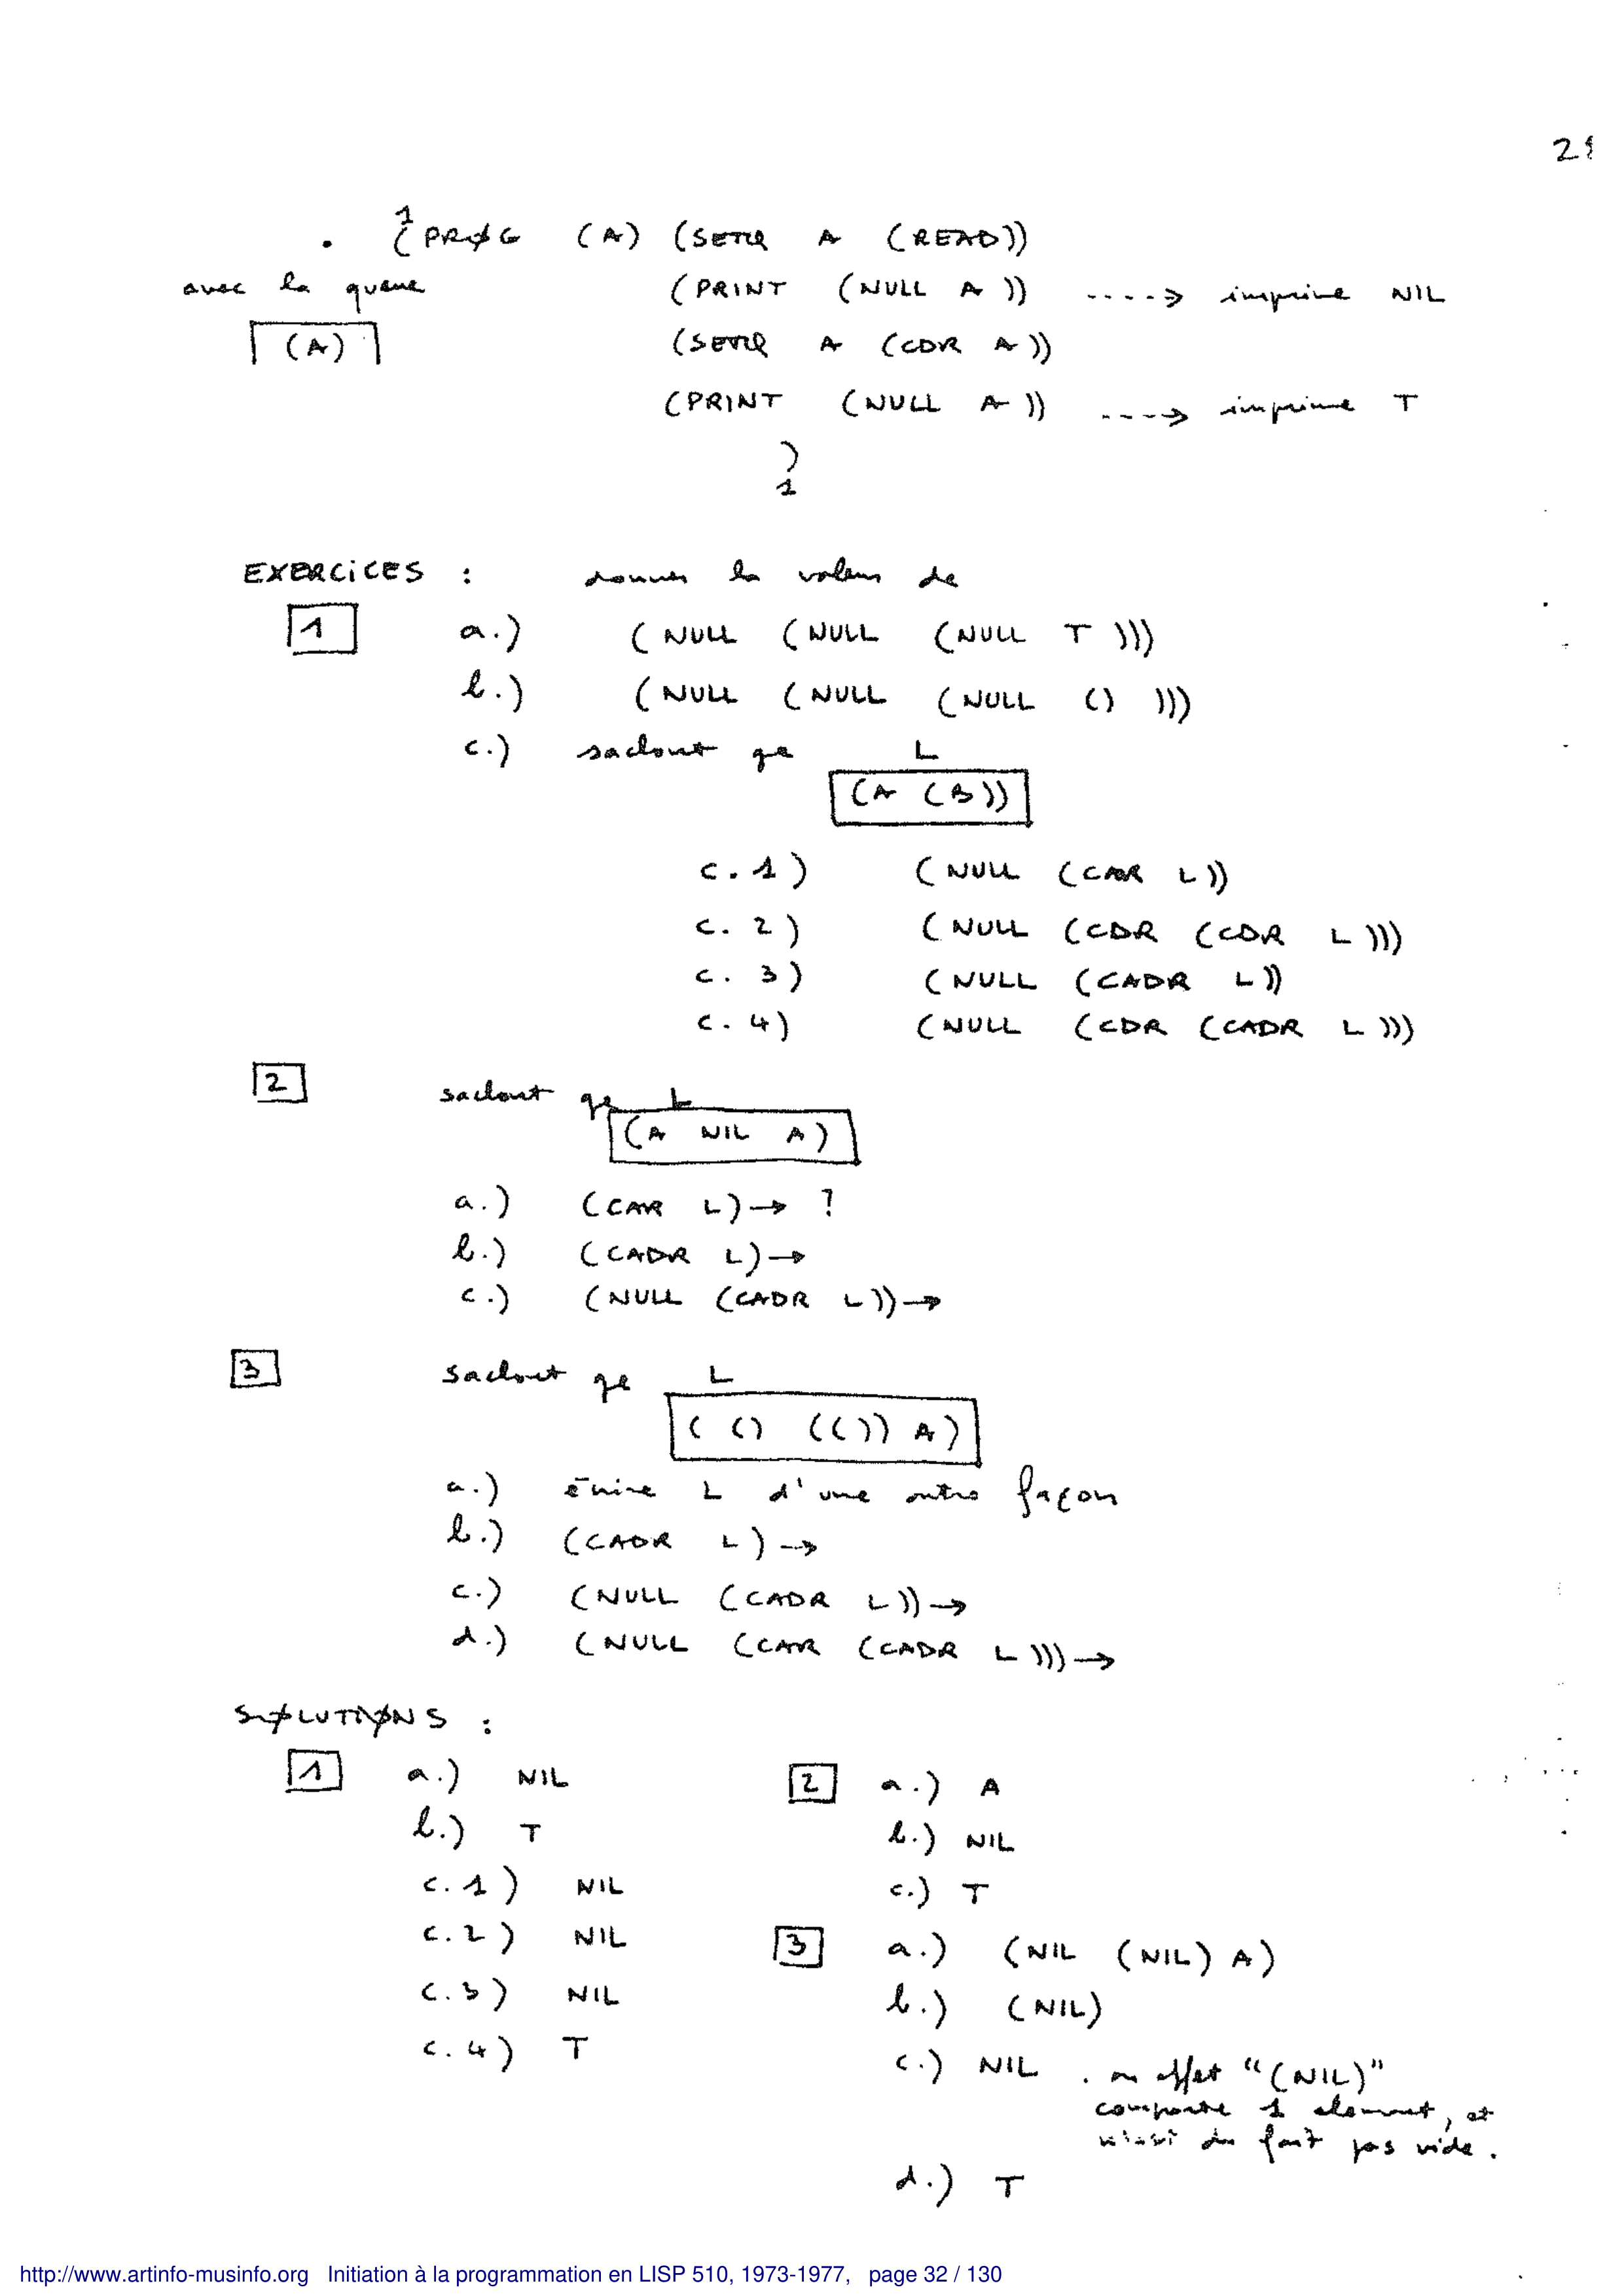 1
. (PRØG (A) (SETQ A (READ))
avec la queue (PRINT (NULL A)) ----> imprime NIL
(A) (SETQ A (CDR A))
(PRINT (NULL A)) ----> imprime T
)
1
EXERCiCES : donner la valeur de
1 a.) (NULL (NULL (NULL T )))
b.) (NULL (NULL (NULL () )))
c.) sachant que L
(A (B))
c.1) (NULL (CAR L))
c.2) (NULL (CDR (CDR L)))
c.3) (NULL (CADR L))
c.4) (NULL (CDR (CADR L)))
2 sachant que L
(A NIL A)
a.) (CAR L)→ ?
b.) (CADR L)→
c.) (NULL (CADR L))→
3 sachant que L
( () (()) A)
a.) écrire L d'une autre façon
b.) (CADR L)→
c.) (NULL (CADR L))→
d.) (NULL (CAR (CADR L)))→
SØLUTIØNS :
1 a.) NIL
b.) T
c.1) NIL
c.2) NIL
c.3) NIL
c.4) T
2 a.) A
b.) NIL
c.) T
3 a.) (NIL (NIL) A)
b.) (NIL)
c.) NIL . en effet "(NIL)"
comporte 1 element, et
du fait pas vide.
d.) T
http://www.artinfo-musinfo.org Initiation à la programmation en LISP 510, 1973-1977, page 32 / 130